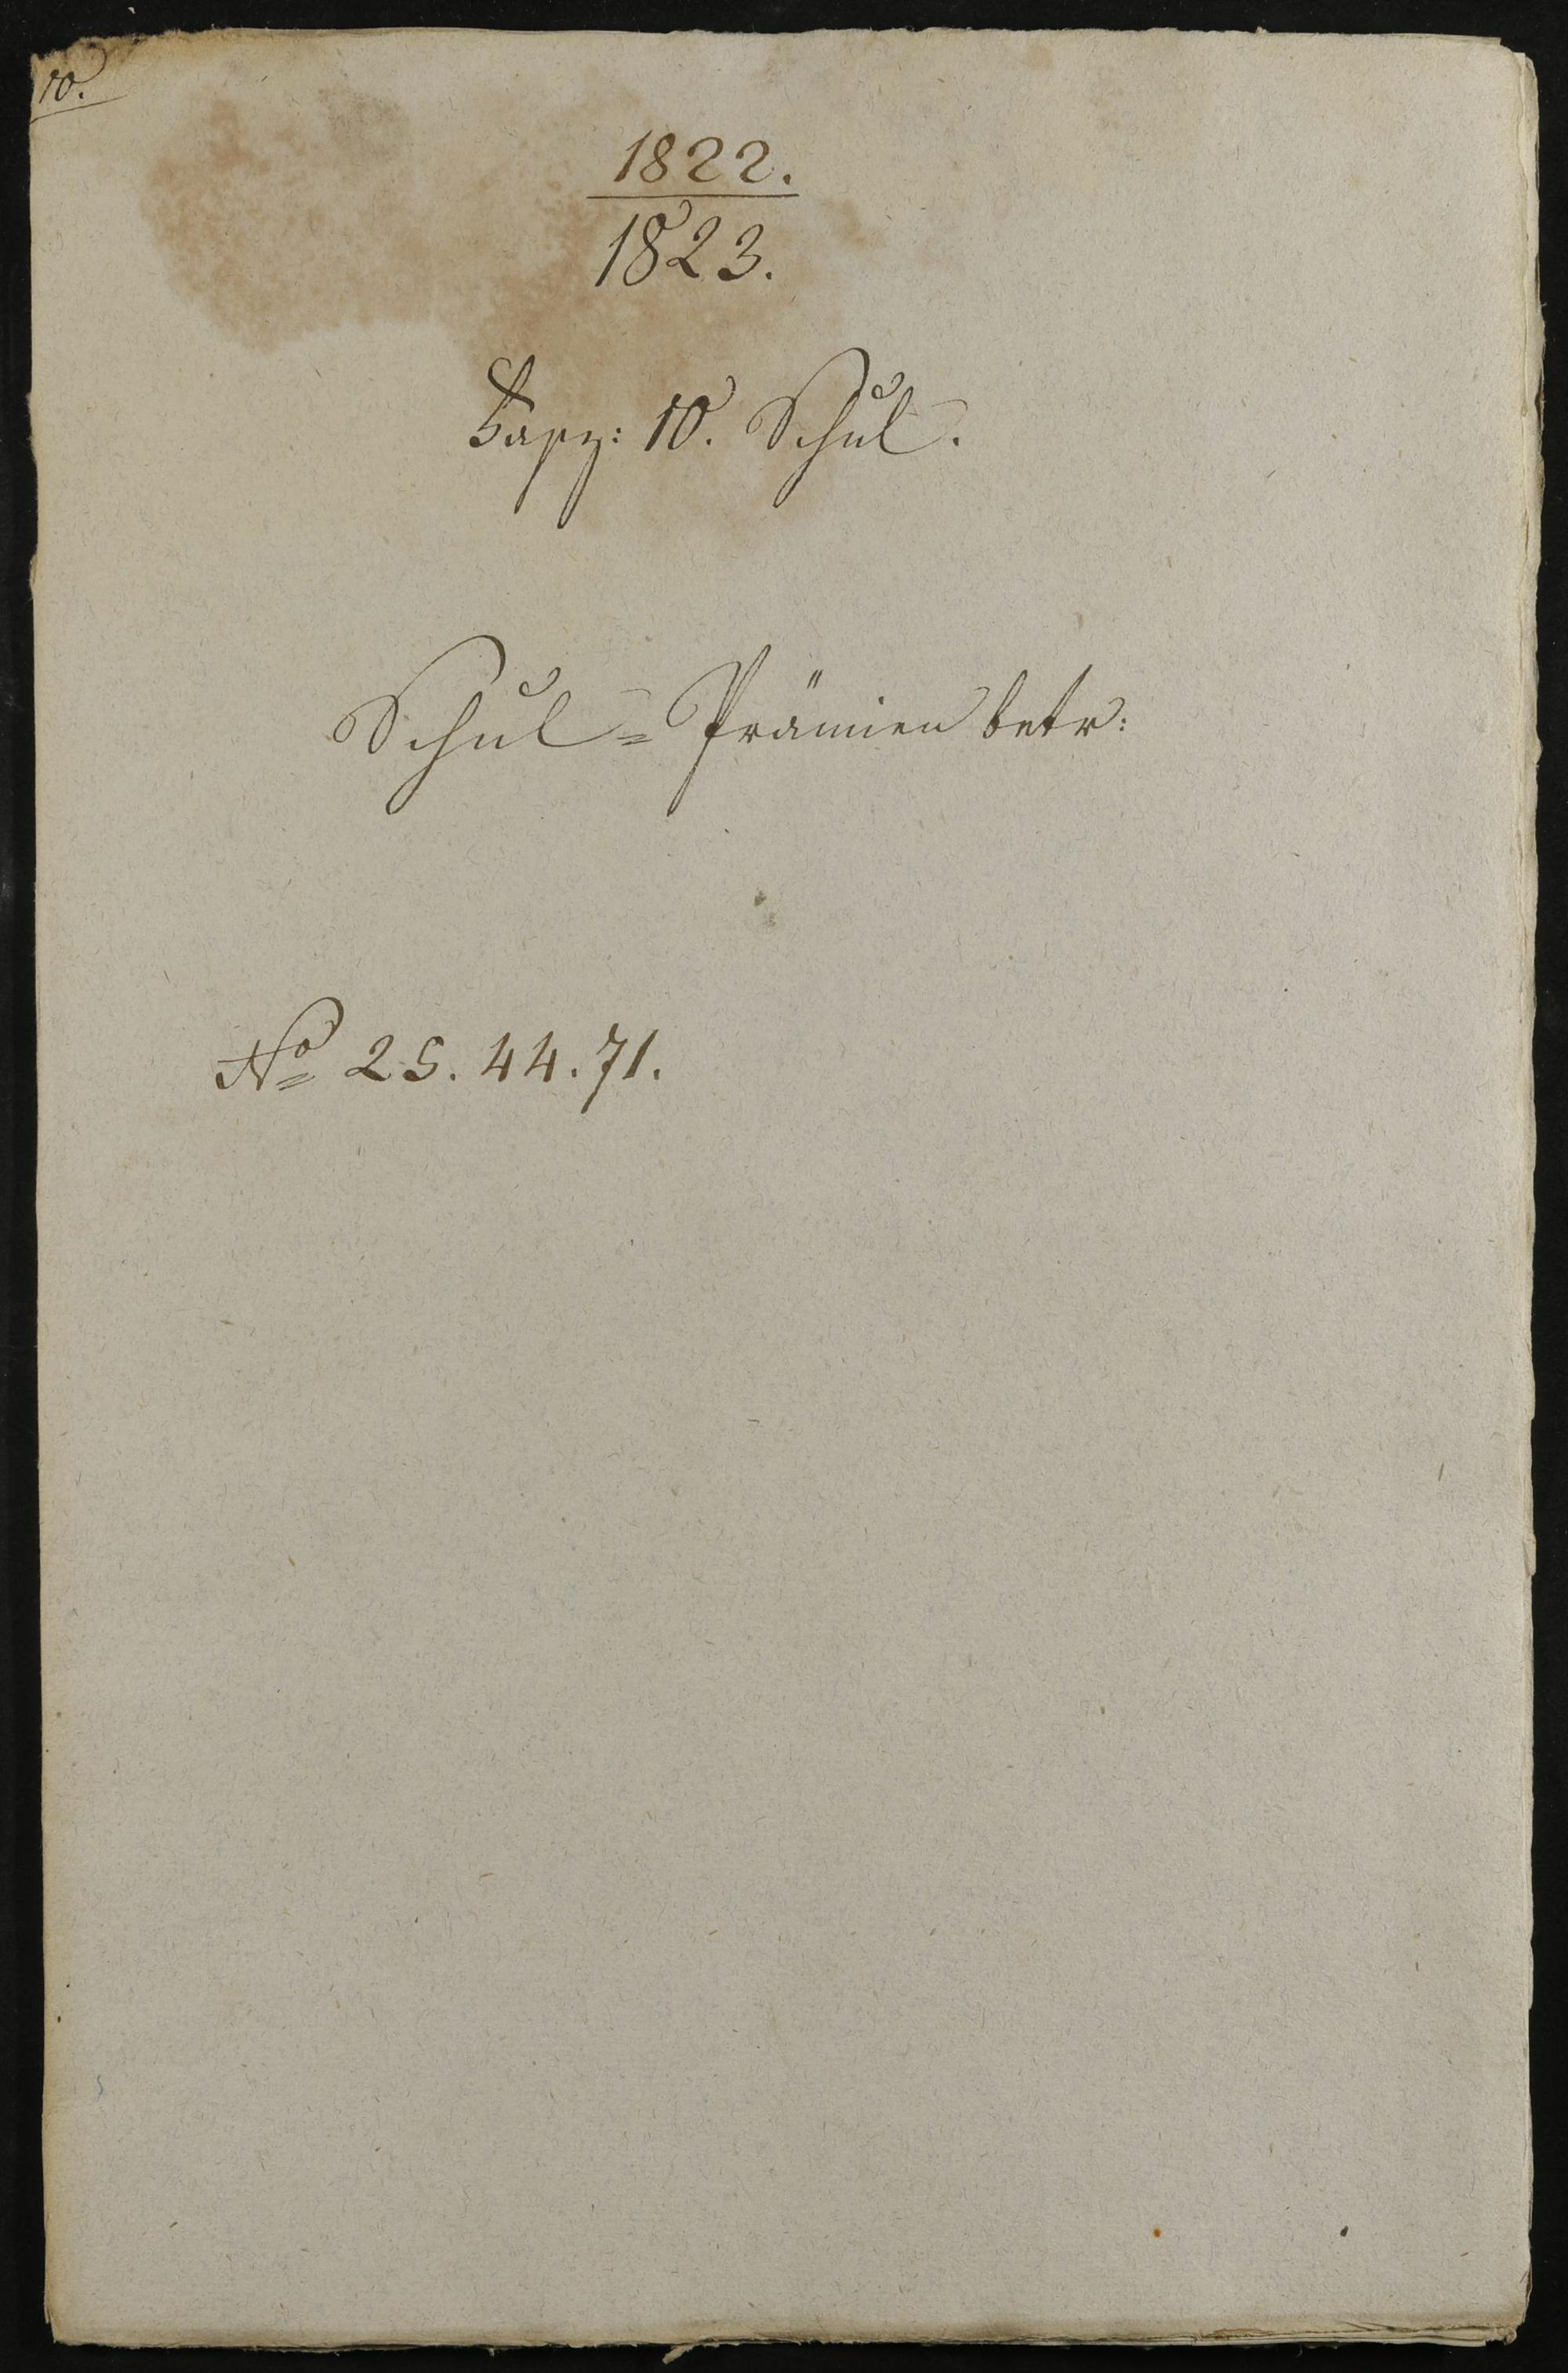 10.
1822.
1823.
10. Schul.
Schul= Prämien betr:
No 25. 44. 71.